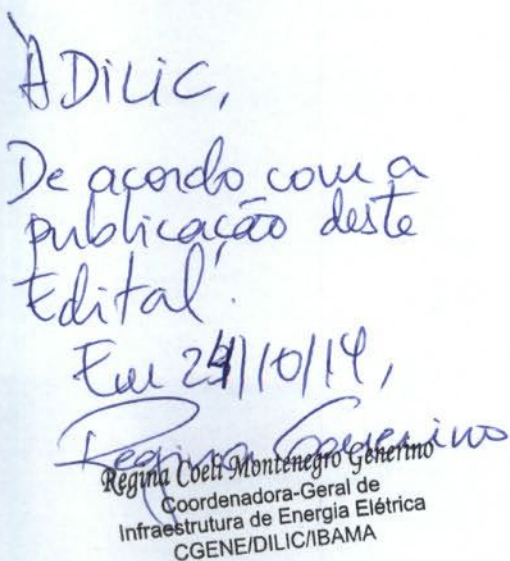 À DILIC,
De acordo com a
publicação deste
Edital.
Em 24/10/14,
Regina Generino
Regina Coeli Montenegro Generino
Coordenadora-Geral de
Infraestrutura de Energia Elétrica
CGENE/DILIC/IBAMA